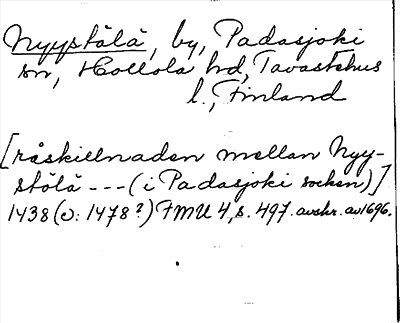 Nyystölä, by, Padasjoki
sn, Hollola hd, Tavastehus
l., Finland
[råskillnaden mellan Nyy-
stölä --- (i Padasjoki socken)]
1438 (o: 1478?) FMU 4, s. 497. avskr. av 1696.